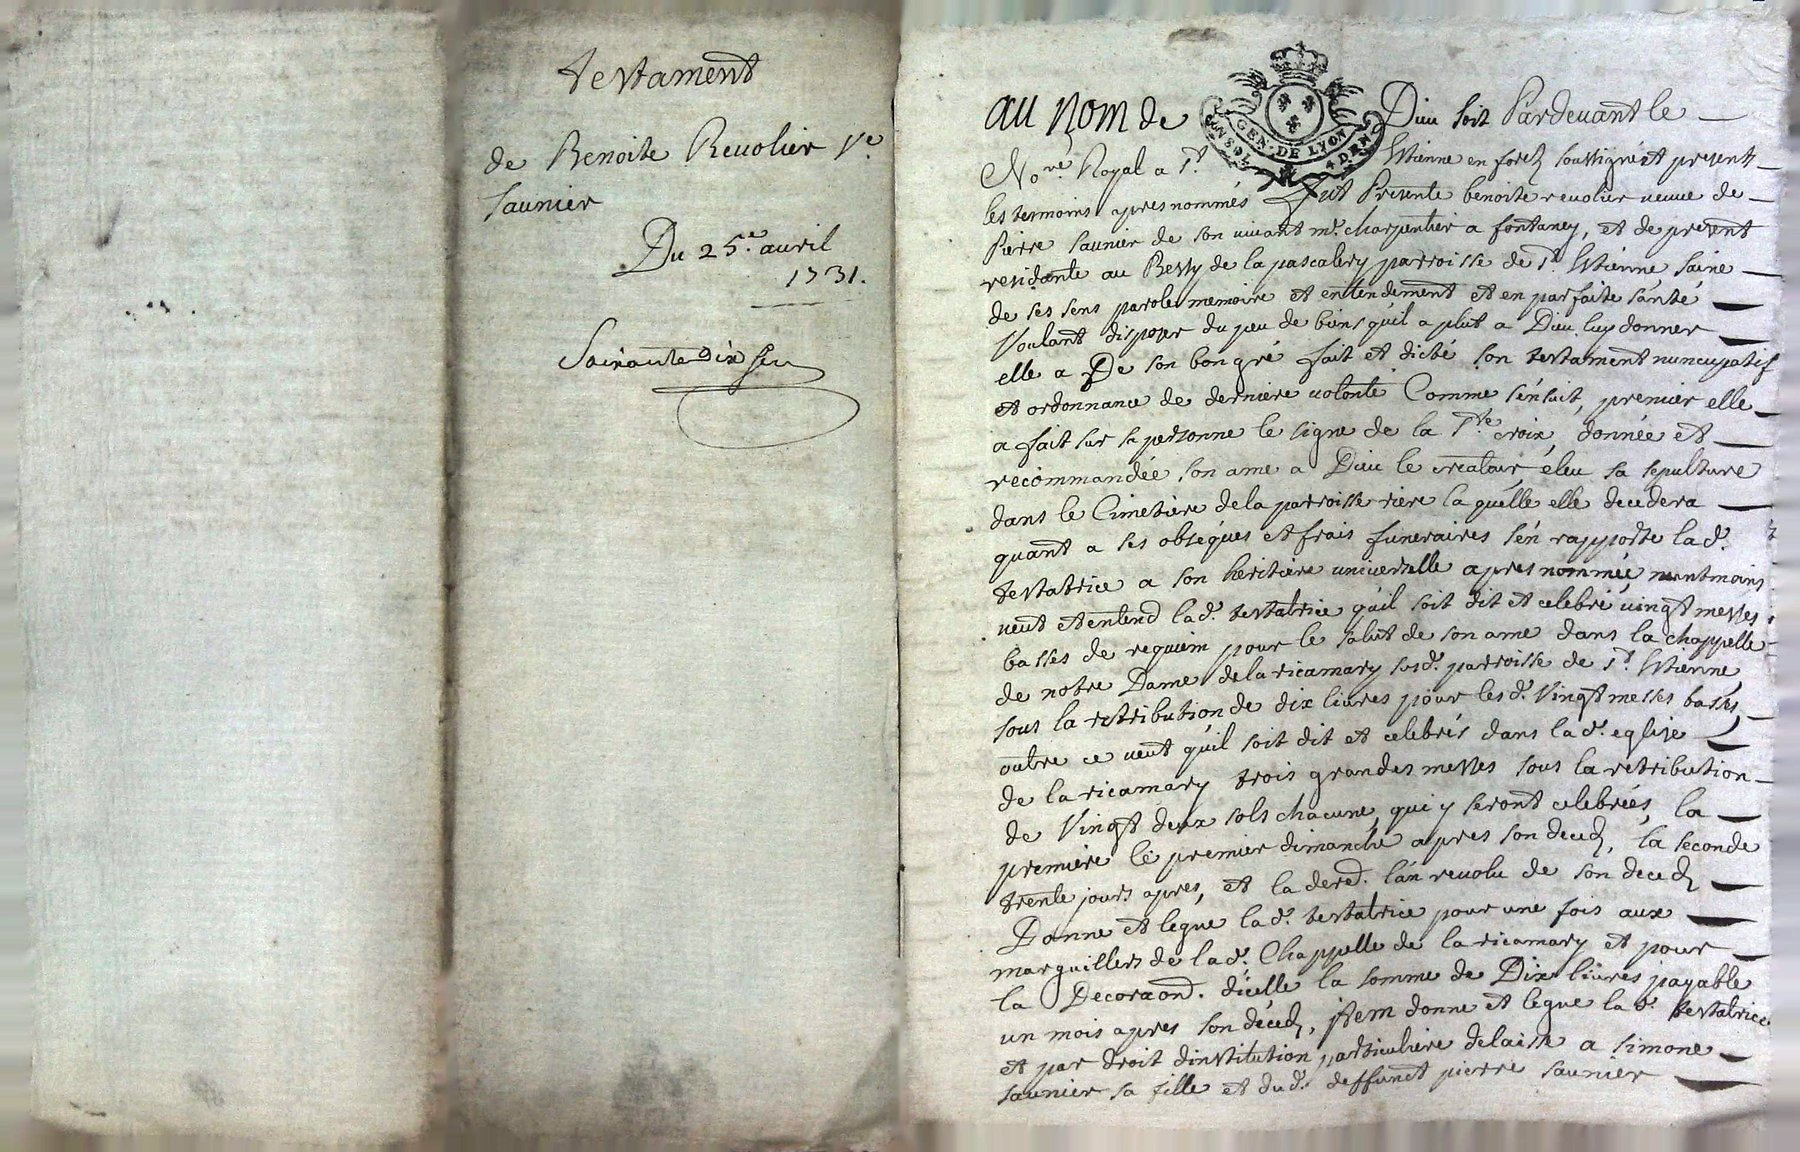 testament
de Benoite Reuolier Ve
Saunier
Du 25e. auril
1731.
Soixante Dix
au nom de Dieu soit Pardeuant le
GEN. DE LYON
Nore. Royal a St. Estienne en forest soussigné et presents
les temoins apres nommés fut Presente benoite reuolier veuue de
Pierre saunier de son uiuant me. charpentier a fontaney, et de present
residente au Bessy de la pascalery parroisse de St. Estienne saine
de ses sens parole memoire et entendement et en parfaite santé
Voulant disposer du peu de biens quil a plut a Dieu luy donner
elle a De son bon gré fait et dicté son testament nuncupatif
et ordonnance de derniere uolonté Comme s'ensuit, premier elle
a fait sur sa personne le signe de la Ste croix, donnée et
recommandée son ame a Dieu le createur éleu sa sepulture
dans le Cimetiere de la parroisse riere la quelle elle decedera
quant a ses obséques et frais funeraires s'en rapporte lad.
testatrice a son heritiere uniuerselle apres nommée neantmoins
ueut et entend lad. testatrice qu'il soit dit et celebré uingt messes
basses de requiem pour le salut de son ame dans la chappelle
de notre Dame de la ricamary susd. parroisse de St. Estienne
sous la retribution de dix liures pour lesd. Vingt messes basses,
outre ce ueut qu'il soit dit et celebrés dans lad. eglise
de la ricamary trois grandes messes sous la retribution
de Vingt deux sols chacune, qui y seront celebrées, la
premiere le premier dimanche apres son deced, la seconde
trente jours apres, et la dered. l'an reuolu de son deced
Donne et legue lad. testatrice pour une fois aux
marguilliers de lad. Chappelle de la ricamary et pour
la Decoraon. d'icelle la somme de Dix liures payable
un mois apres son déced, Item donne et legue lad. testatrice
et par droit d'institution particuliere delaisse a simone
saunier sa fille et dud. deffunct pierre saunier